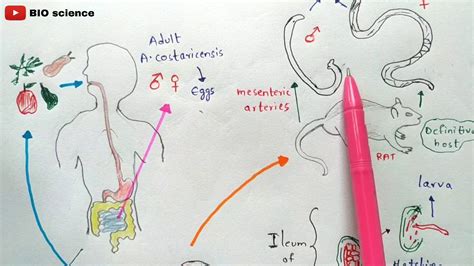 BIO science
Adult
A. costaricensis
♂ ♀
Eggs
♂
♀
mesenteric
arteries
Definitive
host
RAT
larva
Ileum
of
Hatching